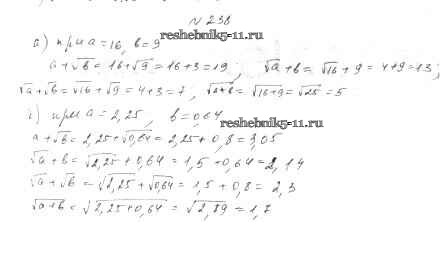 № 238
а) при a=16, b=9
reshebnik5-11.ru
a+√b = 16+√9 = 16+3=19; √a+b = √16+9 = 4+9=13;
√a+√b = √16+√9 = 4+3=7, √a+b = √16+9 = √25 = 5
при a = 2,25, b=0,64
reshebnik5-11.ru
a+√b = 2,25+√0,64 = 2,25+0,8=3,05
√a+b = √2,25+0,64 = 1,5+0,64=2,14
√a+√b = √2,25+√0,64 = 1,5+0,8 = 2,3
√a+b = √2,25+0,64 = √2,89 = 1,7